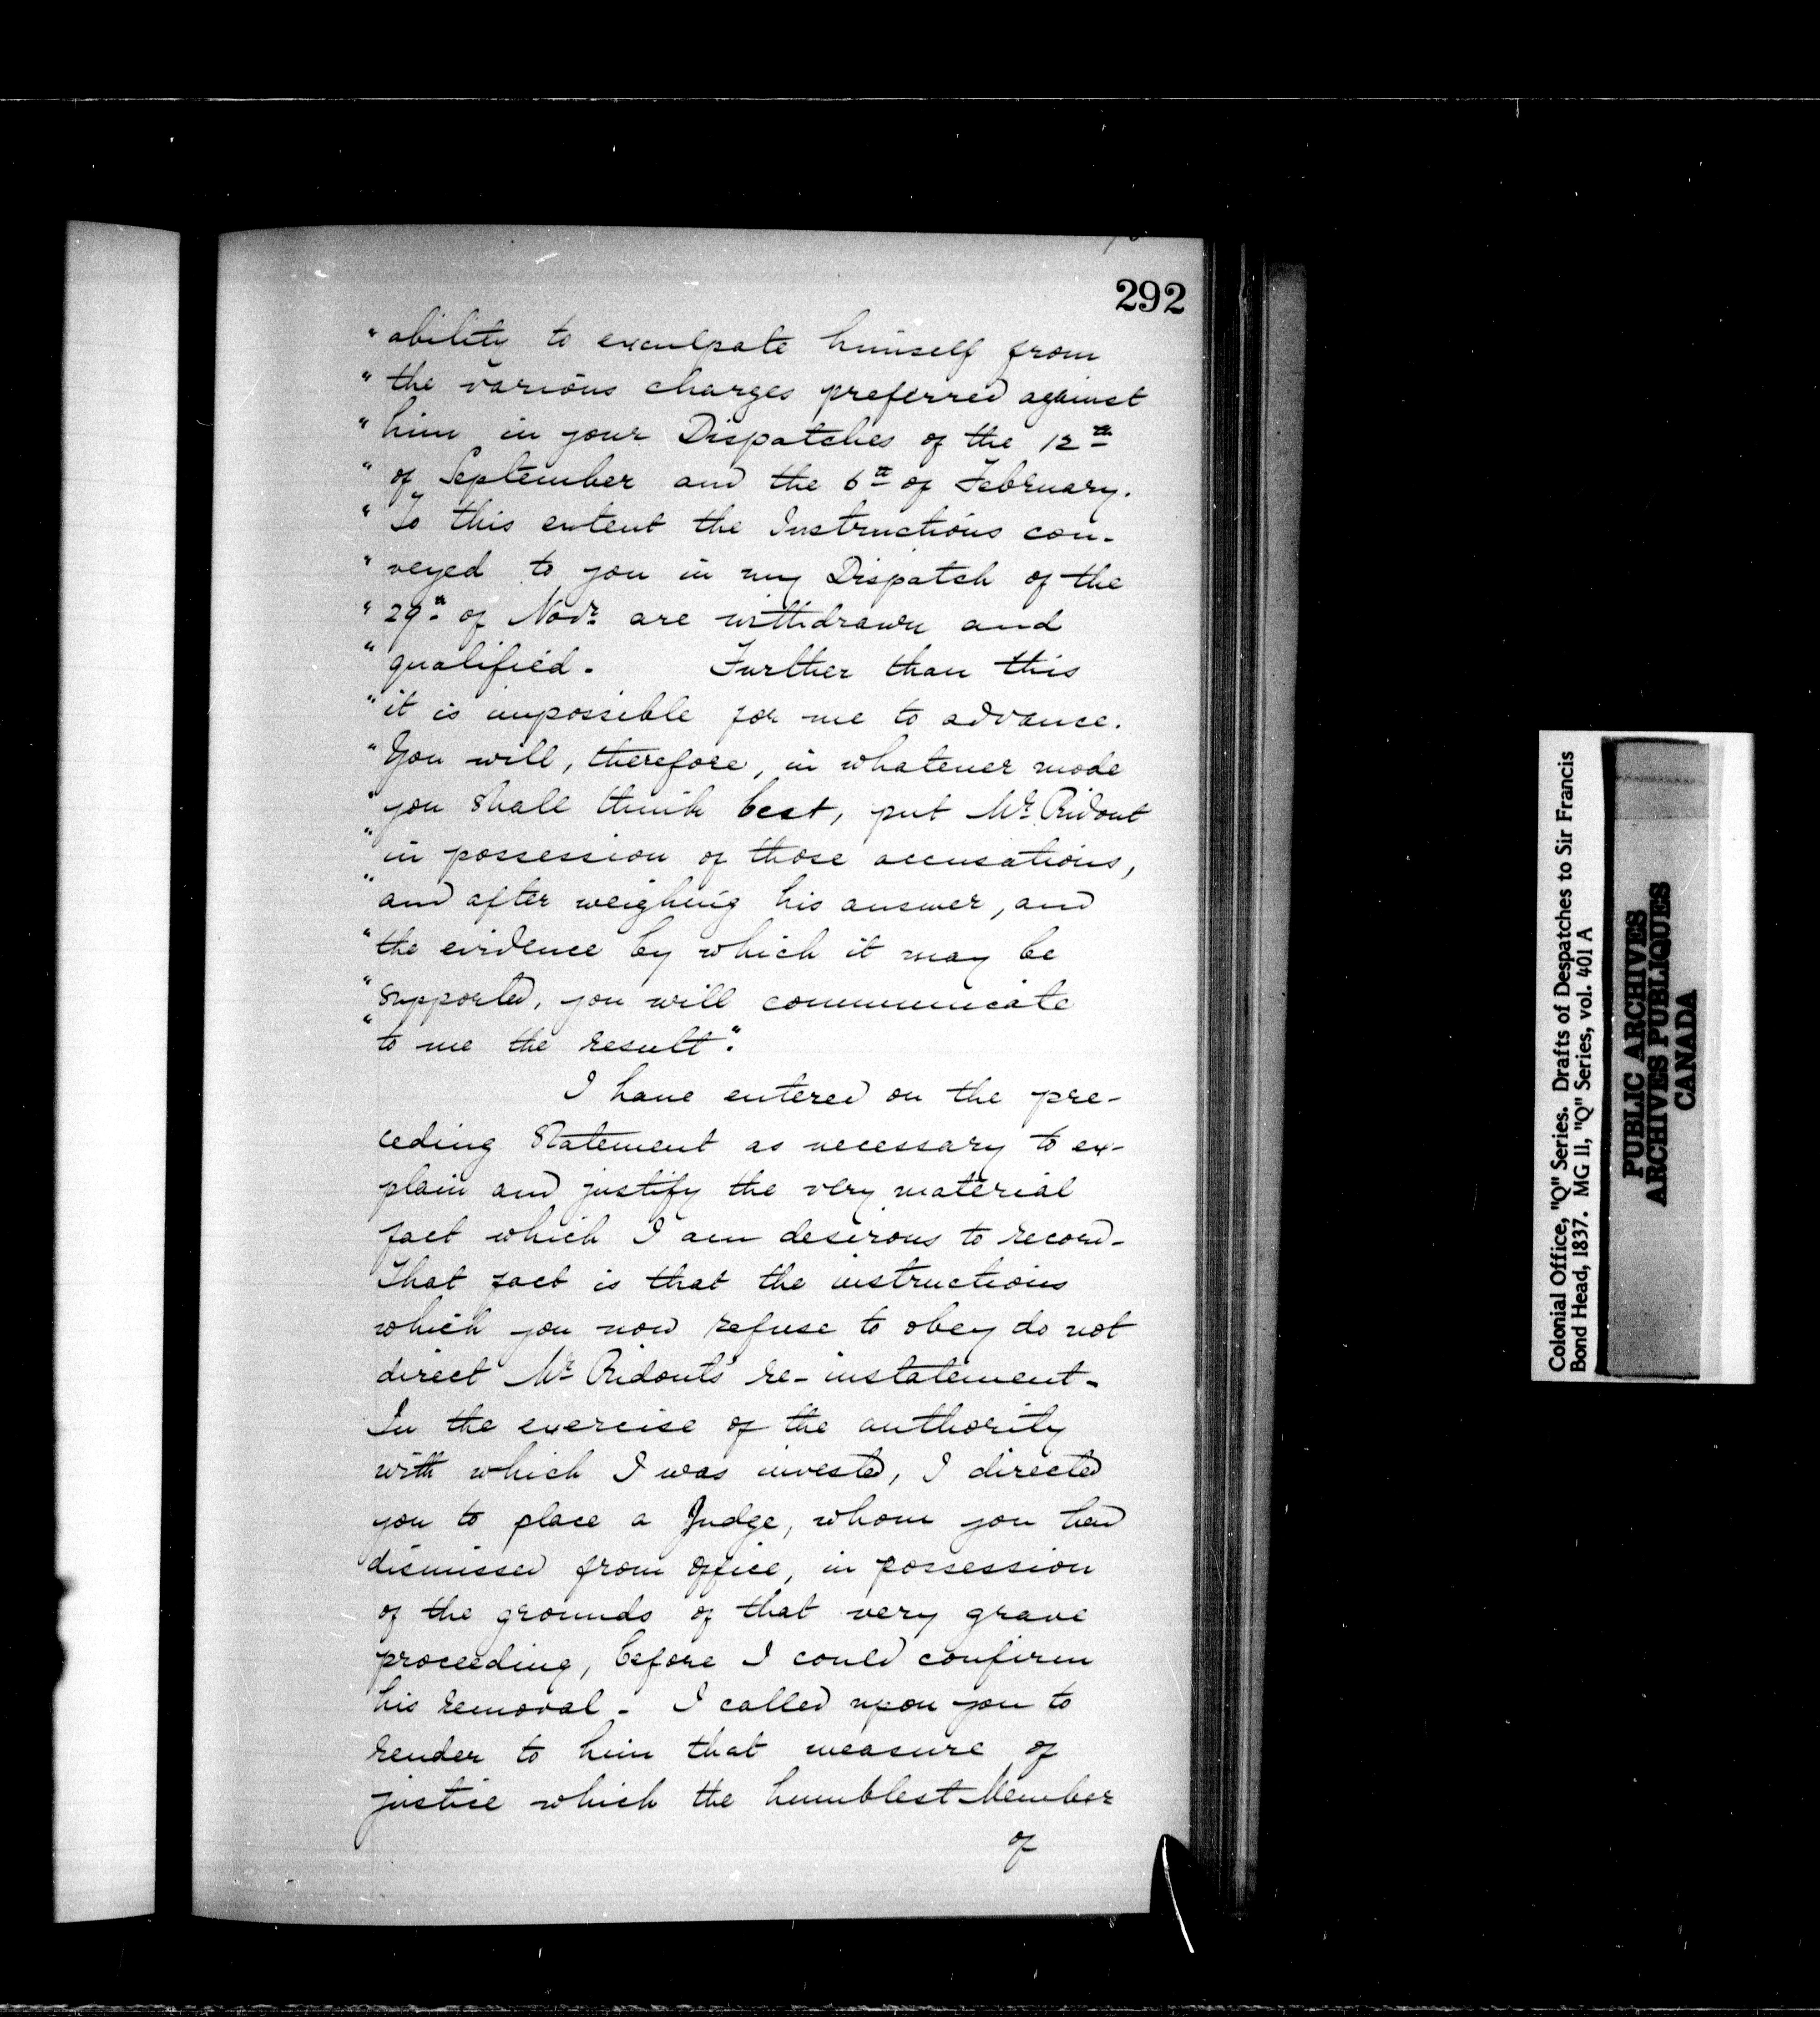 292
"ability to exculpate himself from
"the various charges preferred against
"him in your Dispatches of the 12th
"of September and the 6th of February.
"To this extent the Instructions con-
"veyed to you in my Dispatch of the
"29th of Novr are withdrawn and
"qualified. Further than this
"it is impossible for me to advance.
"You will, therefore, in whatever mode
"you shall think best, put Mr Ridout
"in possession of those accusations,
"and after weighing his answer, and
"the evidence by which it may be
"supported, you will communicate
"to me the result".
I have entered on the pre-
ceding Statement as necessary to ex-
plain and justify the very material
fact which I am desirous to record-
That fact is that the instructions
which you now refuse to obey do not
direct Mr Ridout's re-instatement-
In the exercise of the authority
with which I was invested, I directed
you to place a Judge, whom you had
dismissed from office, in possession
of the grounds of that very grave
proceeding, before I could confirm
his removal - I called upon you to
render to him that measure of
justice which the humblest Member
of
Colonial Office, "Q" Series. Drafts of Despatches to Sir Francis
Bond Head, 1837. MG 11, "Q" Series, vol. 401 A
PUBLIC ARCHIVES
ARCHIVES PUBLIQUES
CANADA